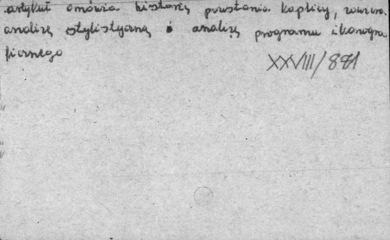 artykuł omówia historię powstania kaplicy, zawiera
analizę stylistyczną i analizę programu ikonogra
ficznego
XXVIII/881